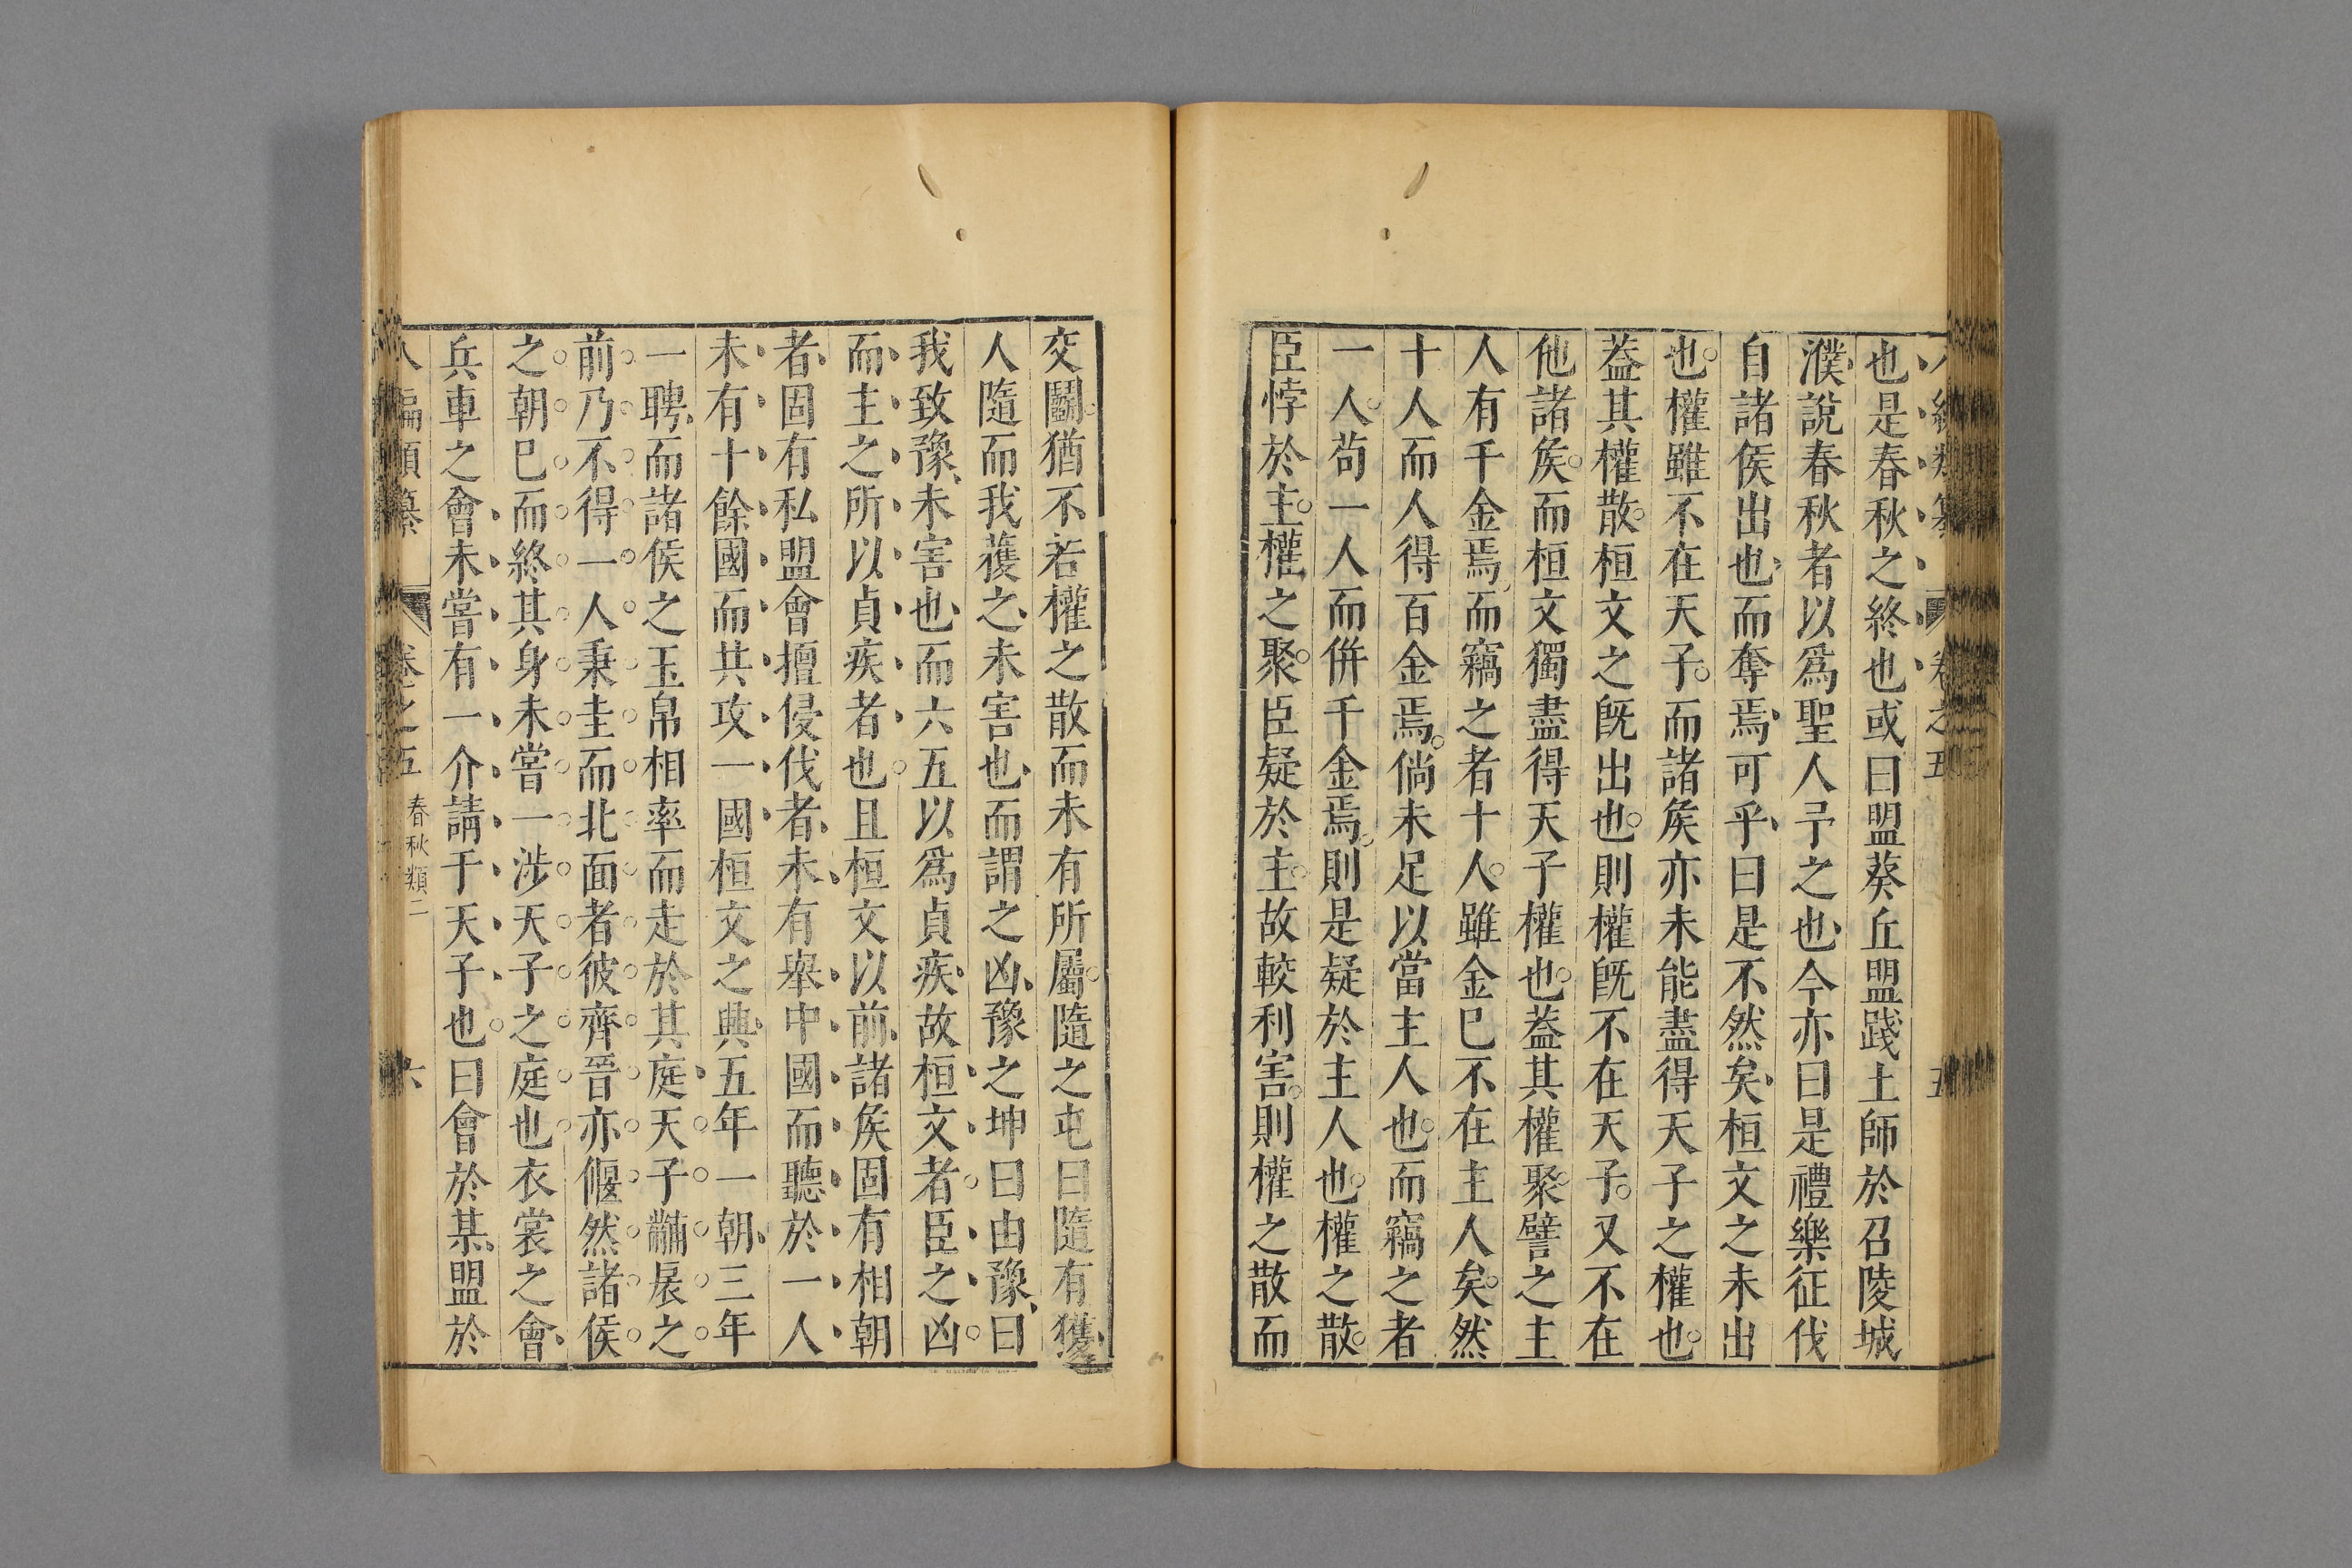 八編類纂 卷之五 五
也是春秋之終也或曰盟葵丘盟踐土師於召陵城
濮說春秋者以爲聖人予之也今亦曰是禮樂征伐
自諸侯出也而奪焉可乎曰是不然矣桓文之未出
也權雖不在天子而諸矦亦未能盡得天子之權也
葢其權散桓文之旣出也則權旣不在天子又不在
他諸矦而桓文獨盡得天子權也葢其權聚譬之主
人有千金焉而竊之者十人雖金已不在主人矣然
十人而人得百金焉倘未足以當主人也而竊之者
一人苟一人而併千金焉則是疑於主人也權之散
臣悖於主權之聚臣疑於主故較利害則權之散而
交鬭猶不若權之散而未有所屬隨之屯曰隨有獲
人隨而我獲之未害也而謂之凶豫之坤曰由豫曰
我致豫未害也而六五以爲貞疾故桓文者臣之凶
而主之所以貞疾者也且桓文以前諸矦固有相朝
者固有私盟會擅侵伐者未有舉中國而聽於一人
未有十餘國而共攻一國桓文之興五年一朝三年
一聘而諸侯之玉帛相率而走於其庭天子黼扆之
前乃不得一人秉圭而北面者彼齊晉亦偃然諸侯
之朝已而終其身未嘗一涉天子之庭也衣裳之會
兵車之會未嘗有一介請于天子也曰會於某盟於
八編類纂 卷之五 春秋類二 六